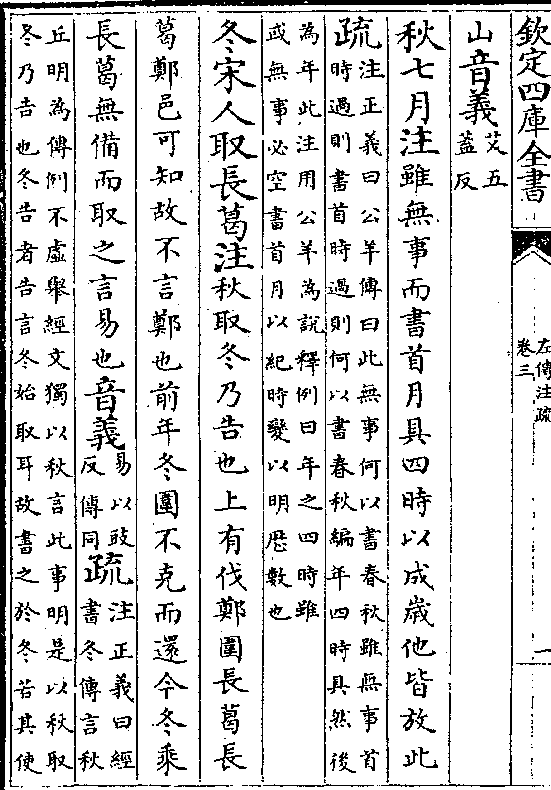 欽定四庫全書
左傳注疏
卷三
一
山音義艾五
蓋反
秋七月注雖無事而書首月具四時以成歲他皆放此
疏注正義曰公羊傳曰此無事何以書春秋雖無事首
時過則書首時過則何以書春秋編年四時具然後
為年此注用公羊為說釋例曰年之四時雖
或無事必空書首月以紀時變以明厯數也
冬宋人取長葛注秋取冬乃告也上有伐鄭圍長葛長
葛鄭邑可知故不言鄭也前年冬圍不克而還今冬乘
長葛無備而取之言易也音義易以豉
反傳同疏注正義曰經
書冬傳言秋
丘明為傳例不虛舉經文獨以秋言此事明是以秋取
冬乃告也冬告者告言冬始取耳故書之於冬若其使